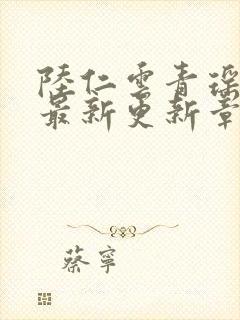 陸仁雲青瑶
最新更新章
蔡寧